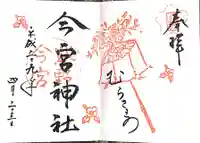 奉拝
むらさきの
今宮神社
平成二十九年
四月二十三日